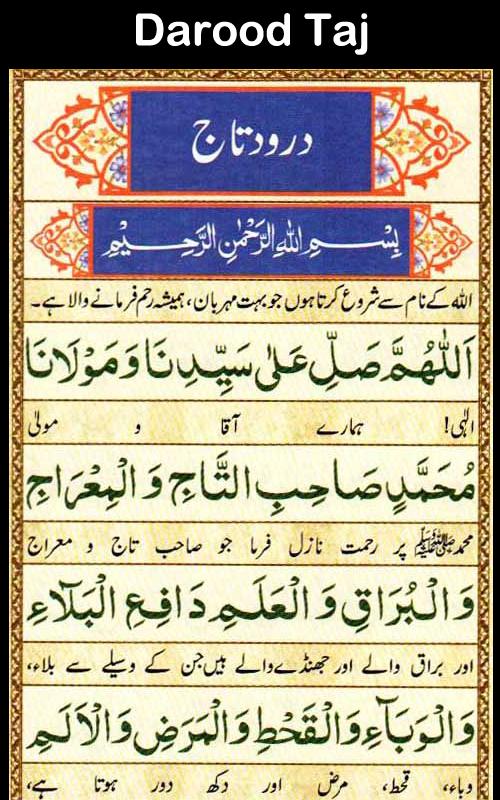 Darood Taj
درود تاج
بِسْمِ اللهِ الرَّحْمٰنِ الرَّحِيْمِ
اللہ کے نام سے شروع کرتا ہوں جو بہت مہربان، ہمیشہ رحم فرمانے والا ہے۔
اَللّٰهُمَّ صَلِّ عَلٰى سَيِّدِنَا وَمَوْلَانَا
الٰہی! ہمارے آقا و مولیٰ
مُحَمَّدٍ صَاحِبِ التَّاجِ وَالْمِعْرَاجِ
محمد ﷺ پر رحمت نازل فرما جو صاحب تاج و معراج
وَالْبُرَاقِ وَالْعَلَمِ دَافِعِ الْبَلَآءِ
اور براق والے اور جھنڈے والے ہیں جن کے وسیلے سے بلاء،
وَالْوَبَآءِ وَالْقَحْطِ وَالْمَرَضِ وَالْاَلَمِ
وباء، قحط، مرض اور دکھ دور ہوتا ہے،